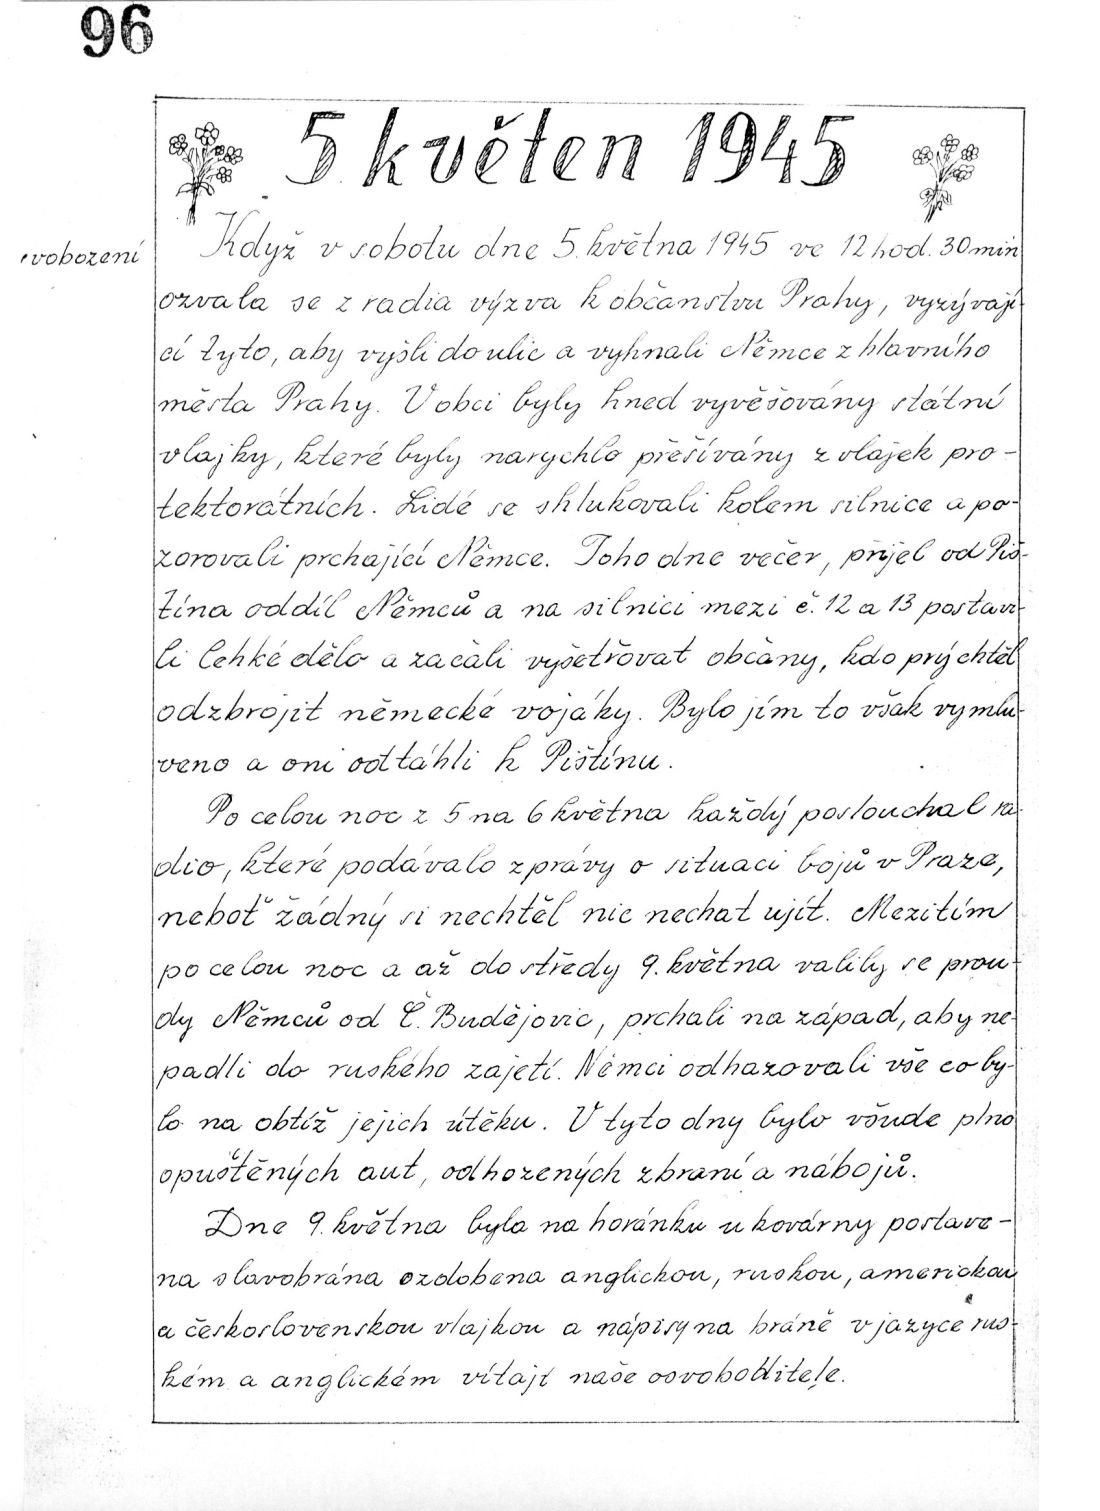 96
5 květen 1945
vobození
Když v sobotu dne 5. května 1945 ve 12 hod. 30 min
ozvala se z radia výzva k občanstvu Prahy, vyzývají-
cí tyto, aby vyšli do ulic a vyhnali Němce z hlavního
města Prahy. V obci byly hned vyvěšovány státní
vlajky, které byly narychlo přešívány z vlajek pro-
tektorátních. Lidé se shlukovali kolem silnice a po-
zorovali prchající Němce. Toho dne večer, přijel od Piš-
tína oddíl Němců a na silnici mezi č. 12 a 13 postavi-
li lehké dělo a začali vyšetřovat občany, kdo prý chtěl
odzbrojit německé vojáky. Bylo jím to však vymlu-
veno a oni odtáhli k Pištínu.
Po celou noc z 5 na 6 května každý poslouchal ra-
dio, které podávalo zprávy o situaci bojů v Praze,
neboť žádný si nechtěl nic nechat ujít. Mezitím
po celou noc a až do středy 9. května valily se prou-
dy Němců od Č. Budějovic, prchali na západ, aby ne-
padli do ruského zajetí. Němci odhazovali vše co by-
lo na obtíž jejich útěku. V tyto dny bylo všude plno
opuštěných aut, odhozených zbraní a nábojů.
Dne 9. května byla na horánku u kovárny postave-
na slavobrána ozdobena anglickou, ruskou, americkou
a československou vlajkou a nápisy na bráně v jazyce rus-
kém a anglickém vítají naše osvoboditele.